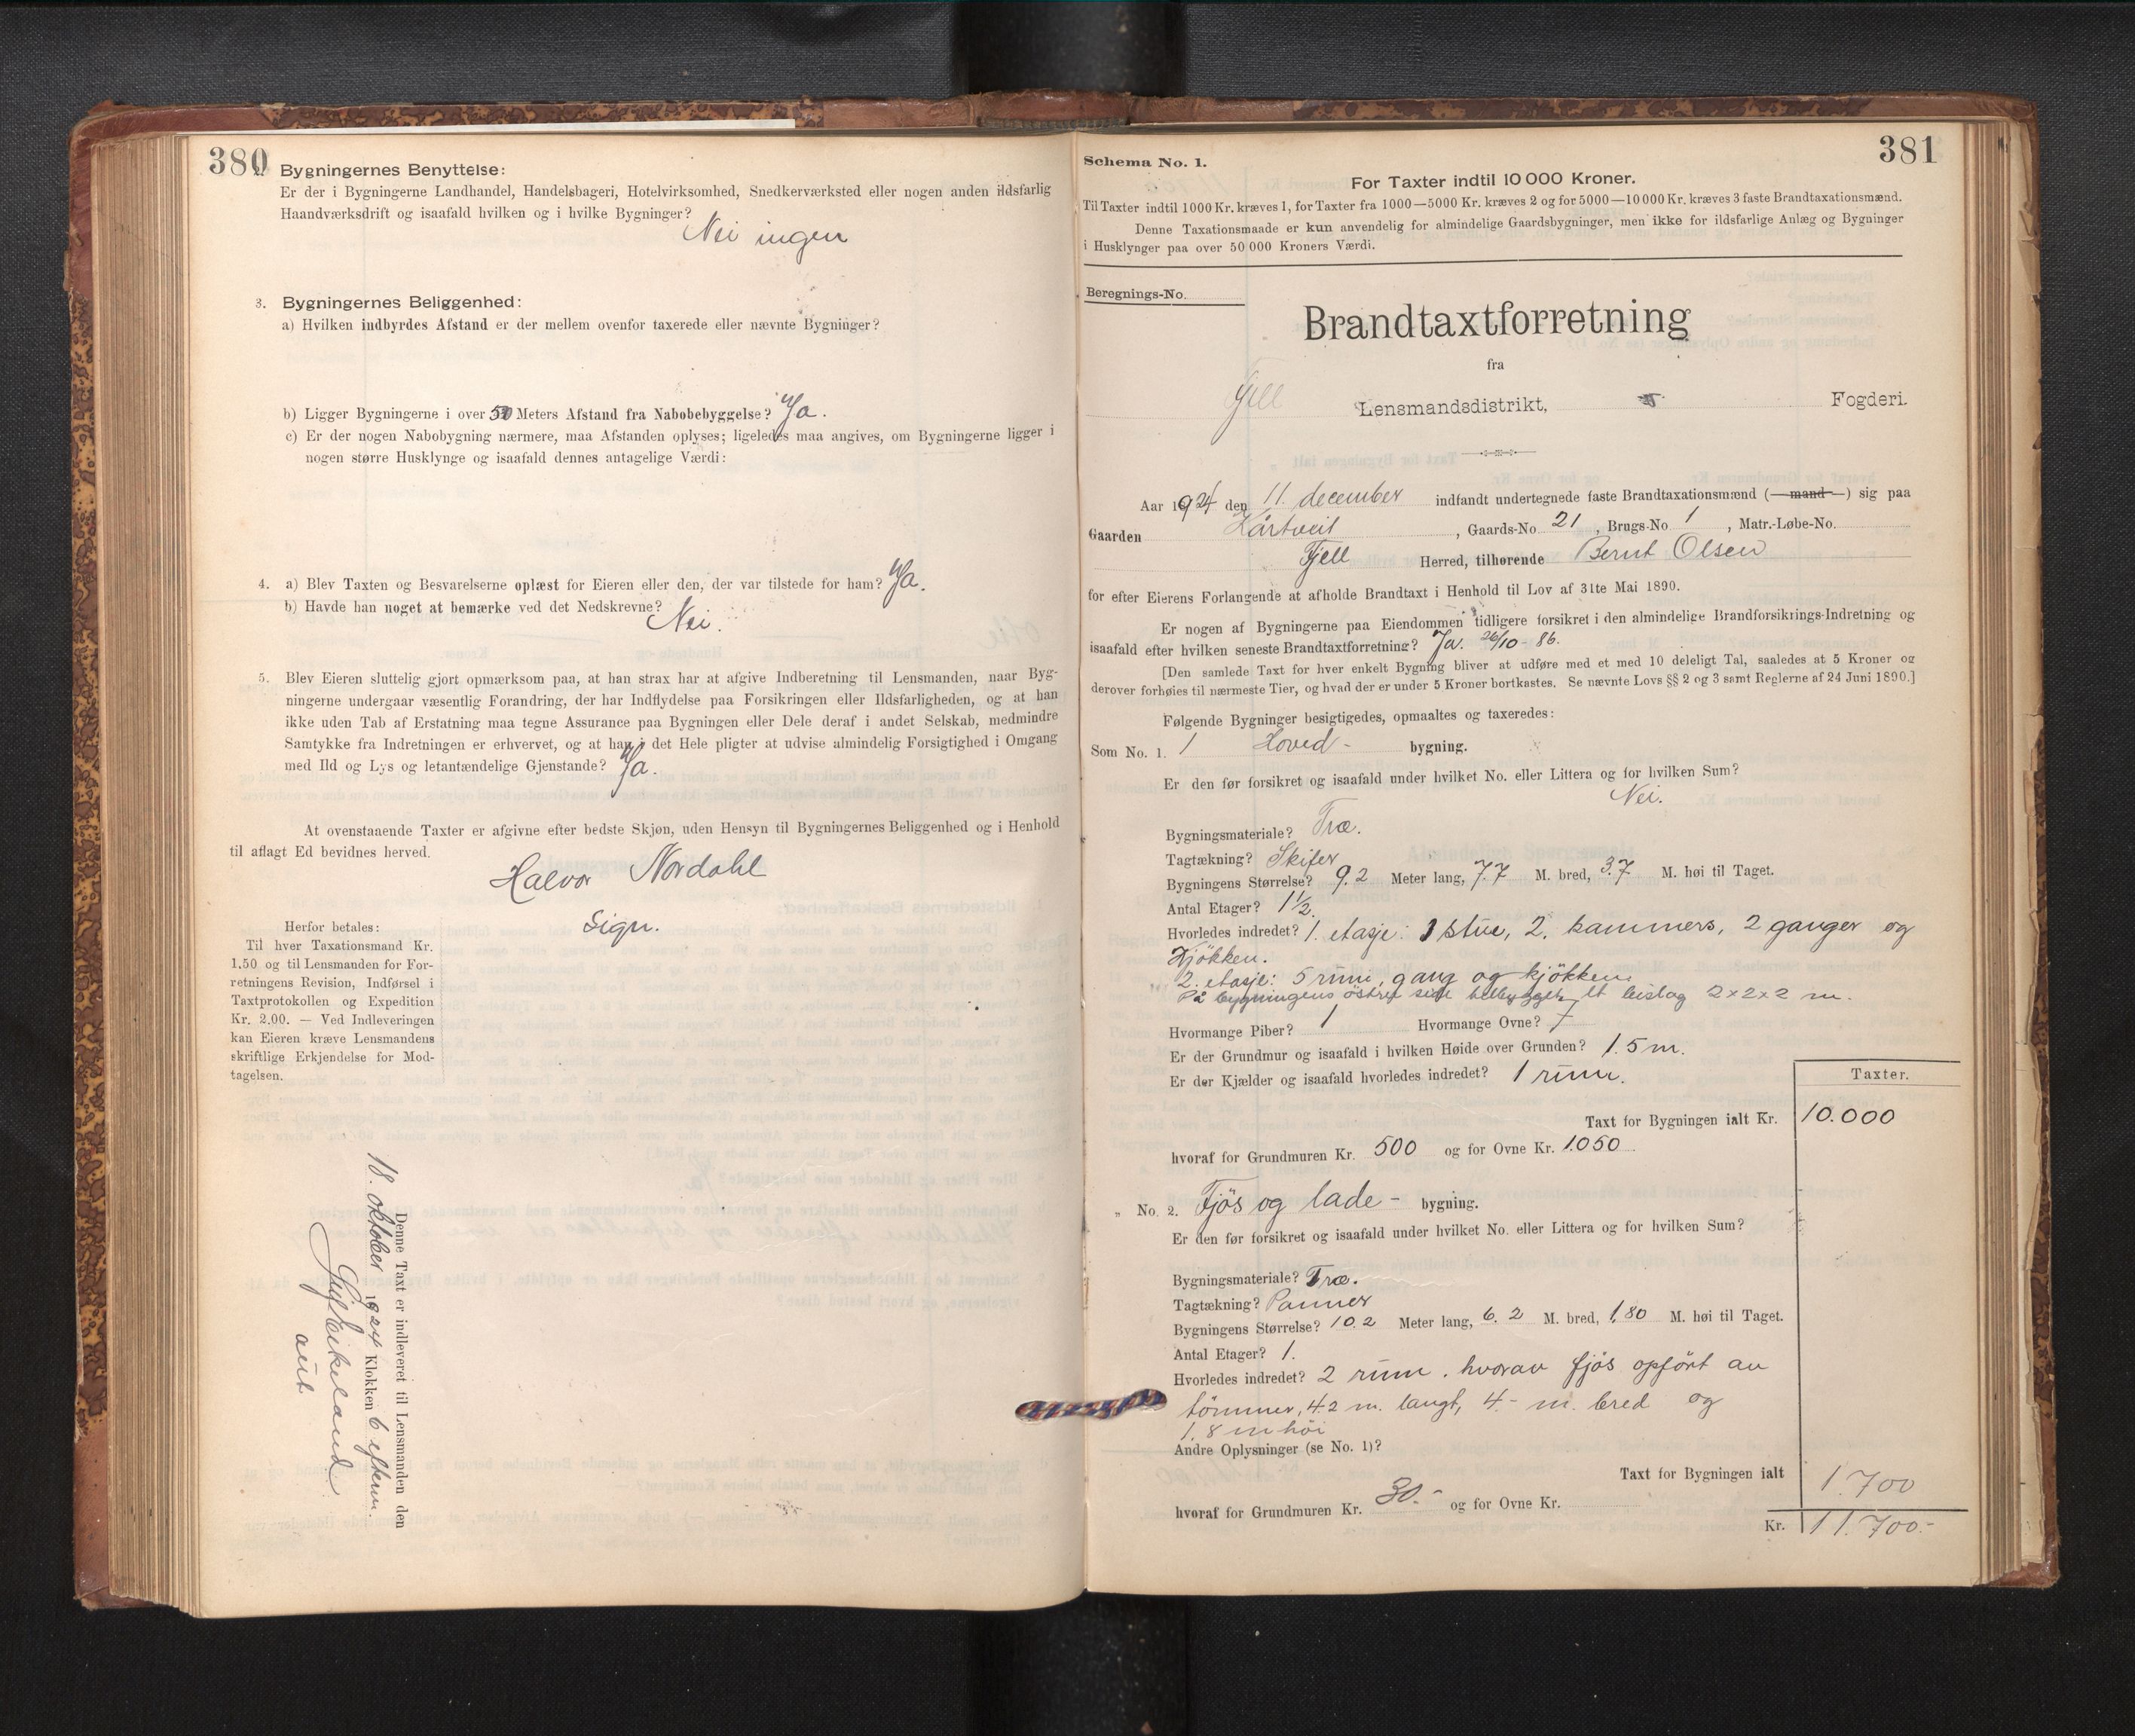 380
2. Bygningernes Benyttelse:
Er der i Bygningerne Landhandel, Handelsbageri, Hotelvirksomhed, Snedkerværksted eller nogen anden ildsfarlig
Haandværksdrift og isaafald hvilken og i hvilke Bygninger?
Nei ingen
3. Bygningernes Beliggenhed:
a) Hvilken indbyrdes Afstand er der mellem ovenfor taxerede eller nævnte Bygninger?
b) Ligger Bygningerne i over 50 Meters Afstand fra Nabobebyggelse? Ja.
c) Er der nogen Nabobygning nærmere, maa Afstanden oplyses; ligeledes maa angives, om Bygningerne ligger i
nogen større Husklynge og isaafald dennes antagelige Værdi:
4. a) Blev Taxten og Besvarelserne oplæst for Eieren eller den, der var tilstede for ham? Ja.
b) Havde han noget at bemærke ved det Nedskrevne? Nei.
5. Blev Eieren sluttelig gjort opmærksom paa, at han strax har at afgive Indberetning til Lensmanden, naar Byg-
ningerne undergaar væsentlig Forandring, der har Indflydelse paa Forsikringen eller Ildsfarligheden, og at han
ikke uden Tab af Erstatning maa tegne Assurance paa Bygningen eller Dele deraf i andet Selskab, medmindre
Samtykke fra Indretningen er erhvervet, og at han i det Hele pligter at udvise almindelig Forsigtighed i Omgang
med Ild og Lys og letantændelige Gjenstande? Ja.
At ovenstaaende Taxter er afgivne efter bedste Skjøn, uden Hensyn til Bygningernes Beliggenhed og i Henhold
til aflagt Ed bevidnes herved.
Halvor Nordahl
Sign.
Herfor betales:
Til hver Taxationsmand Kr.
1,50 og til Lensmanden for For-
retningens Revision, Indførsel i
Taxtprotokollen og Expedition
Kr. 2.00. — Ved Indleveringen
kan Eieren kræve Lensmandens
skriftlige Erkjendelse for Mod-
tagelsen.
Denne Taxt er indleveret til Lensmanden den
18. oktober 1924 Klokken 6 efterm.
aut
381
Schema No. 1.
For Taxter indtil 10 000 Kroner.
Til Taxter indtil 1000 Kr. kræves 1, for Taxter fra 1000—5000 Kr. kræves 2 og for 5000—10 000 Kr. kræves 3 faste Brandtaxationsmænd.
Denne Taxationsmaade er kun anvendelig for almindelige Gaardsbygninger, men ikke for ildsfarlige Anlæg og Bygninger
i Husklynger paa over 50 000 Kroners Værdi.
Beregnings-No.
Brandtaxtforretning
fra
Fjell Lensmandsdistrikt, Fogderi.
Aar 1924 den 11. december indfandt undertegnede faste Brandtaxationsmænd (—mand—) sig paa
Gaarden Kårtveit, Gaards-No 21, Brugs-No 1, Matr.-Løbe-No.
Fjell Herred, tilhørende Bernt Olsen
for efter Eierens Forlangende at afholde Brandtaxt i Henhold til Lov af 31te Mai 1890.
Er nogen af Bygningerne paa Eiendommen tidligere forsikret i den almindelige Brandforsikrings-Indretning og
isaafald efter hvilken seneste Brandtaxtforretning? Ja. 26/10 - 86.
[Den samlede Taxt for hver enkelt Bygning bliver at udføre med et med 10 deleligt Tal, saaledes at 5 Kroner og
derover forhøies til nærmeste Tier, og hvad der er under 5 Kroner bortkastes. Se nævnte Lovs §§ 2 og 3 samt Reglerne af 24 Juni 1890.]
Følgende Bygninger besigtigedes, opmaaltes og taxeredes:
Som No. 1. 1 Hoved- bygning.
Er den før forsikret og isaafald under hvilket No. eller Littera og for hvilken Sum?
Nei.
Bygningsmateriale? Træ.
Tagtækning? Skifer
Bygningens Størrelse? 9.2 Meter lang, 7.7 M. bred, 3.7 M. høi til Taget.
Antal Etager? 1 1/2.
Hvorledes indredet? 1. etasje: 1 stue, 2. kammers, 2 ganger og
Kjökken.
2. etasje: 5 rum, gang og kjökken.
På bygningens östre side tilbygget et bislag 2x2x2 m.
Hvormange Piber? 1 Hvormange Ovne? 7
Er der Grundmur og isaafald i hvilken Høide over Grunden? 1.5 m.
Er der Kjælder og isaafald hvorledes indredet? 1 rum.
Taxter.
Taxt for Bygningen ialt Kr. 10.000
hvoraf for Grundmuren Kr. 500 og for Ovne Kr. 1050
„ No. 2. Fjös og lade- bygning.
Er den før forsikret og isaafald under hvilket No. eller Littera og for hvilken Sum?
Bygningsmateriale? Træ.
Tagtækning? Panner
Bygningens Størrelse? 10.2 Meter lang, 6.2 M. bred, 1.80 M. høi til Taget.
Antal Etager? 1.
Hvorledes indredet? 2 rum. hvorav fjös opfört av
tömmer, 4.2 m. langt, 4.- m. bred og
1.8 m höi
Andre Oplysninger (se No. 1)?
Taxt for Bygningen ialt 1.700
hvoraf for Grundmuren Kr. 30.- og for Ovne Kr.
Kr. 11.700.-